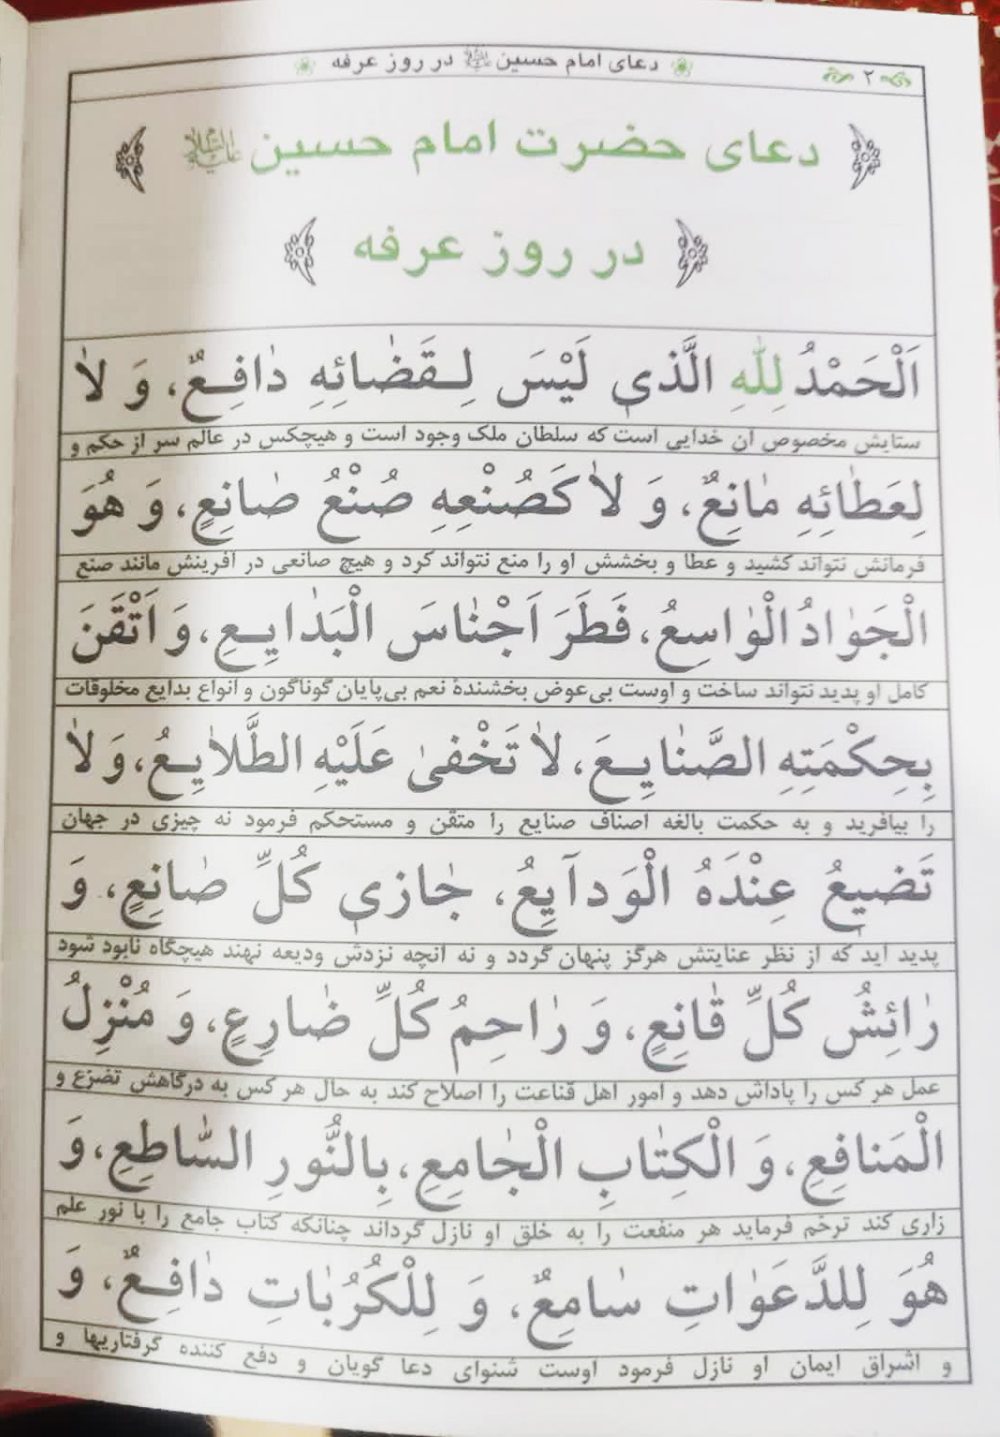 ۲
دعای امام حسین علیه السلام در روز عرفه
دعای حضرت امام حسین علیه السلام
در روز عرفه
اَلْحَمْدُ لِلّٰهِ الَّذی لَیْسَ لِـقَضٰائِهِ دٰافِـعٌ، وَ لاٰ
ستایش مخصوص آن خدایی است که سلطان ملک وجود است و هیچکس در عالم سر از حکم و
لِعَطٰائِهِ مٰانِعٌ، وَ لاٰ کَصُنْعِهِ صُنْعُ صٰانِعٍ، وَ هُوَ
فرمانش نتواند کشید و عطا و بخشش او را منع نتواند کرد و هیچ صانعی در آفرینش مانند صنع
الْجَوٰادُ الْوٰاسِعُ، فَطَرَ اَجْنٰاسَ الْبَدٰایِـعِ، وَ اَتْقَنَ
کامل او پدید نتواند ساخت و اوست بی‌عوض بخشندهٔ نعم بی‌پایان گوناگون و انواع بدایع مخلوقات
بِحِکْمَتِهِ الصَّنٰایِـعَ، لاٰ تَخْفیٰ عَلَیْهِ الطَّلاٰیِـعُ، وَ لاٰ
را بیافرید و به حکمت بالغه اصناف صنایع را متقن و مستحکم فرمود نه چیزی در جهان
تَضیعُ عِنْدَهُ الْوَدآیِعُ، جٰازی کُلِّ صٰانِعٍ، وَ
پدید آید که از نظر عنایتش هرگز پنهان گردد و نه آنچه نزدش ودیعه نهند هیچگاه نابود شود
رٰائِشُ کُلِّ قٰانِعٍ، وَ رٰاحِمُ کُلِّ ضٰارِعٍ، وَ مُنْزِلُ
عمل هر کس را پاداش دهد و امور اهل قناعت را اصلاح کند به حال هر کس به درگاهش تضرّع و
الْمَنافِعِ، وَ الْکِتٰابِ الْجٰامِعِ، بِالنُّورِ السّٰاطِعِ، وَ
زاری کند ترحّم فرماید هر منفعت را به خلق او نازل گرداند چنانکه کتاب جامع را با نور علم
هُوَ لِلدَّعَوٰاتِ سٰامِعٌ، وَ لِلْکُرُبٰاتِ دٰافِـعٌ، وَ
و اشراق ایمان او نازل فرمود اوست شنوای دعا گویان و دفع کننده گرفتاریها و